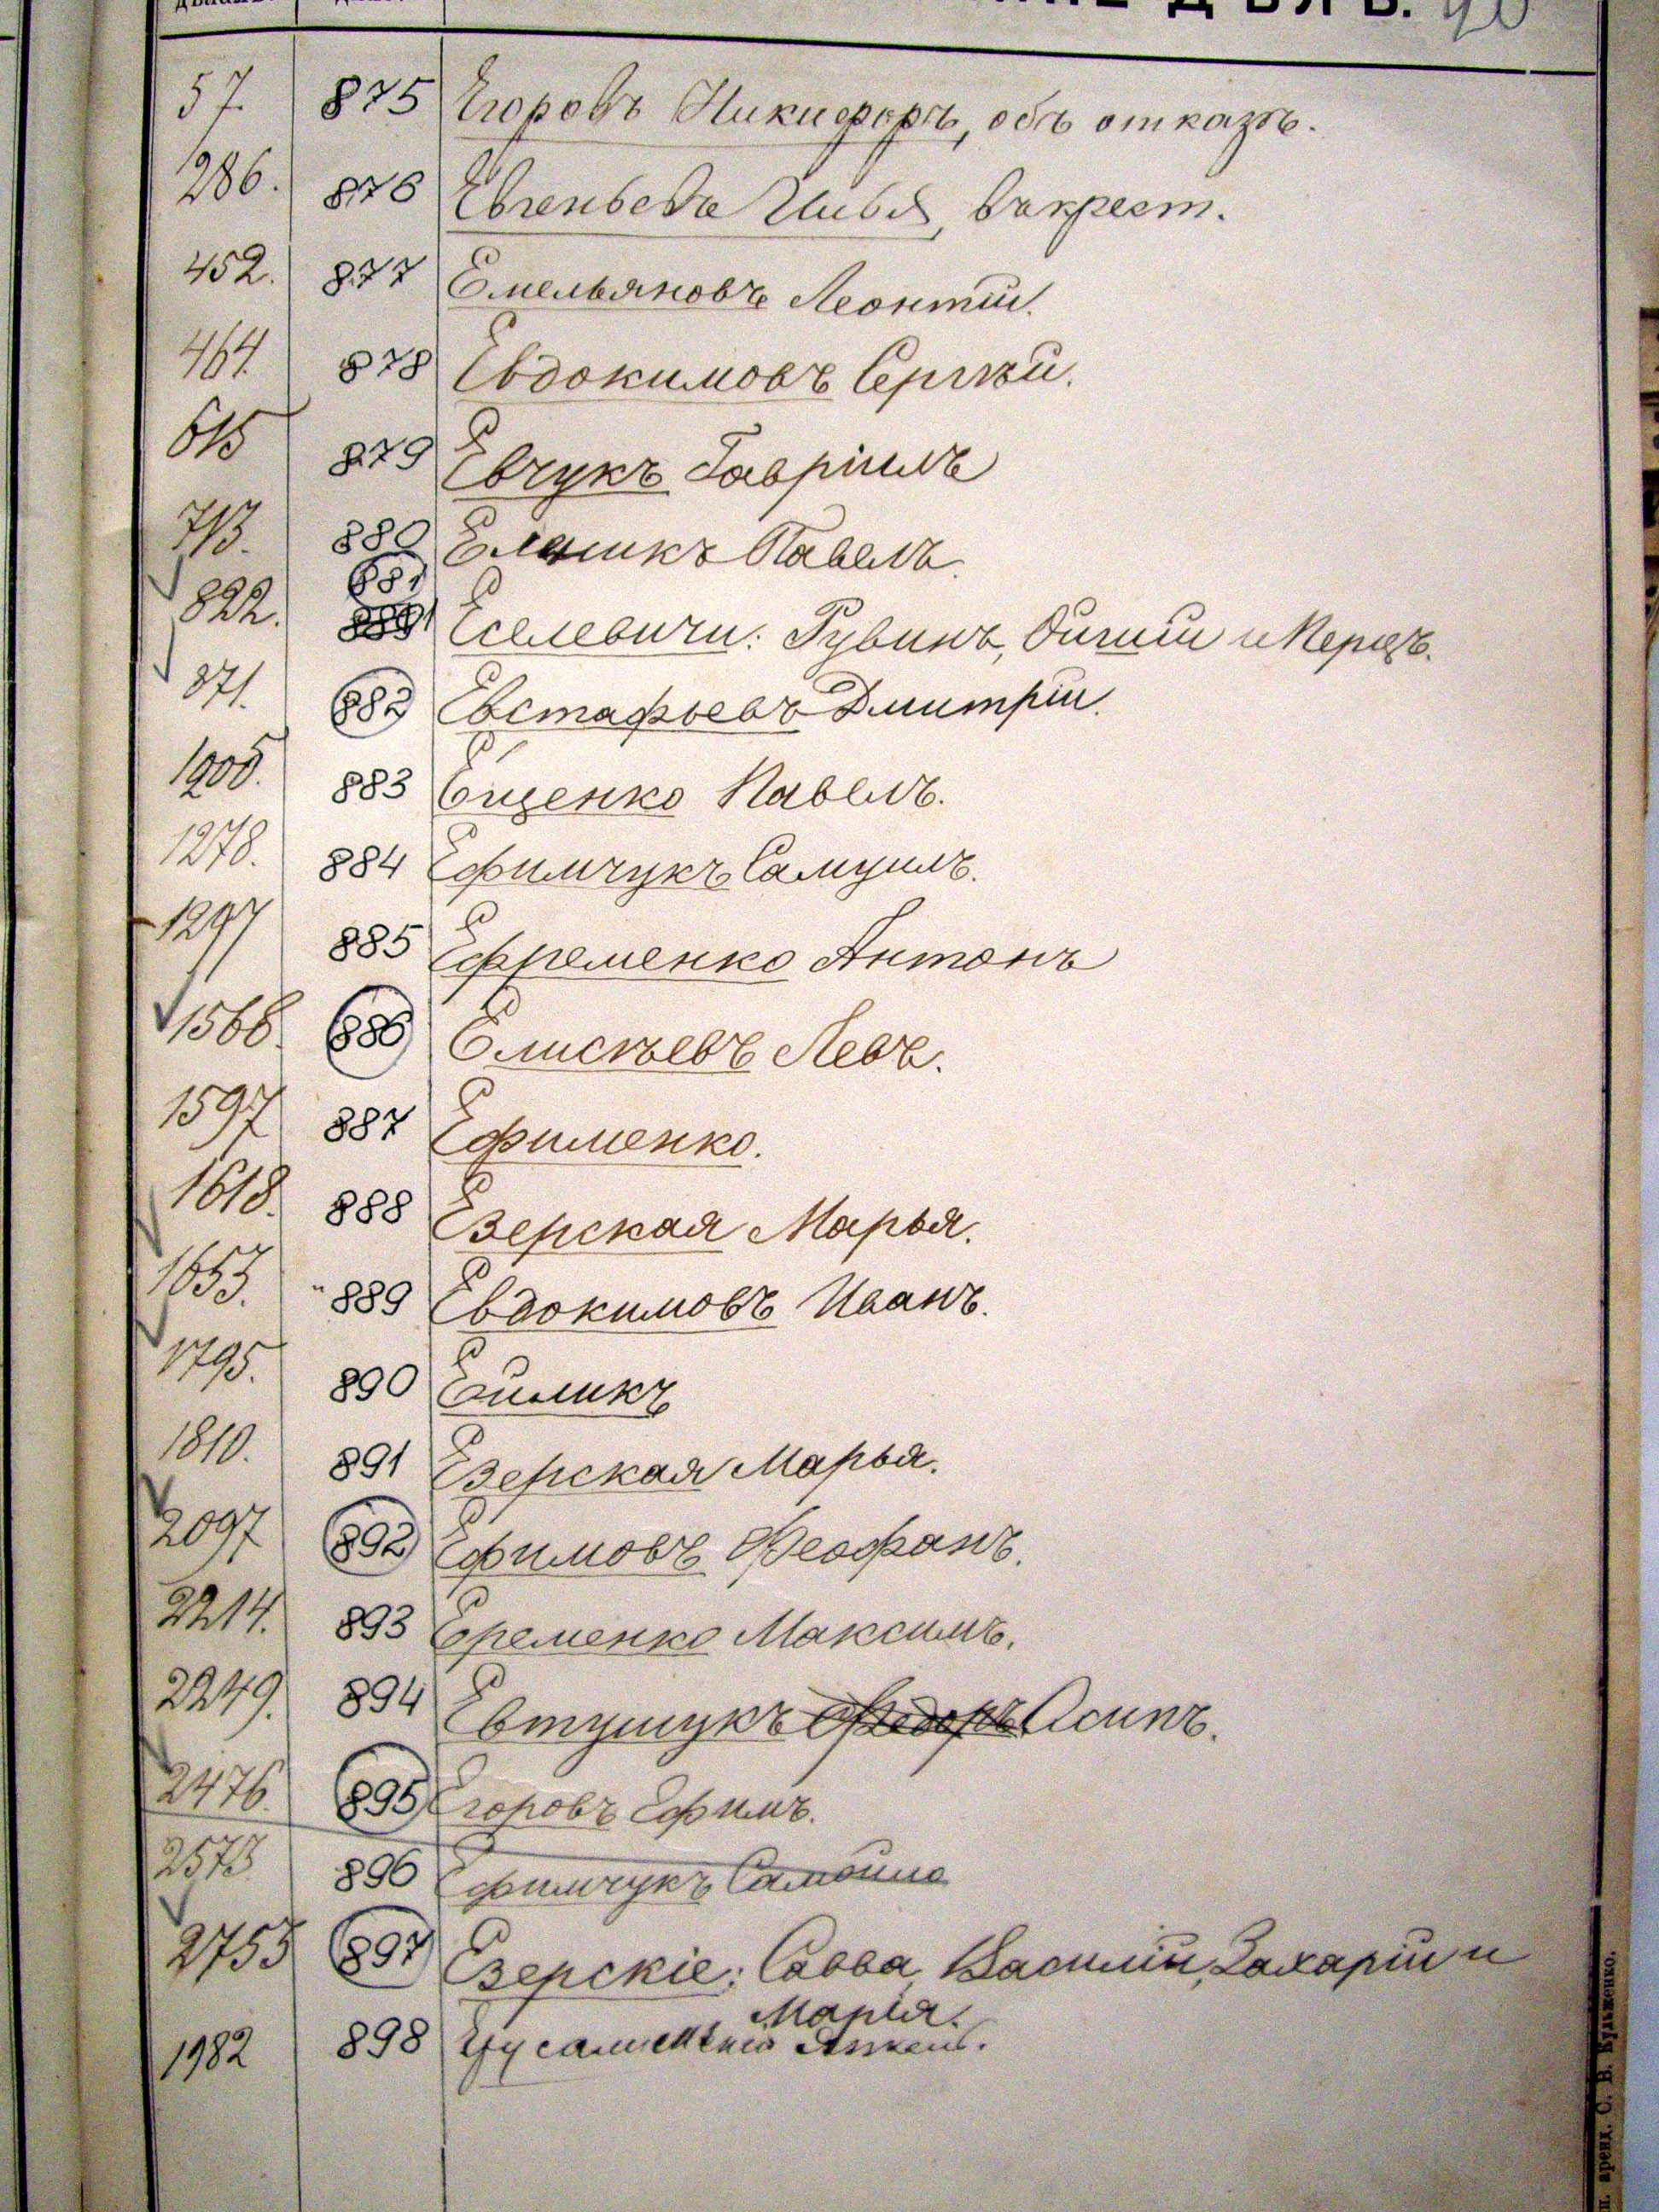 ДѢЛЪ. 90
57. 875 Егоровъ Никифоръ, объ отказѣ.
286. 876 Евгеньевъ Илья, выкрест.
452. 877 Емельяновъ Леонтій.
464. 878 Евдокимовъ Сергѣй.
615 879 Евчукъ Гавріилъ
713. 880 Павелъ.
822. 881 Еселевичи: Рувинъ, и
871. 882 Евстафьевъ Дмитрій.
1005. 883 Ещенко Павелъ.
1278. 884 Ефимчукъ Самуилъ.
1297 885 Ефременко Антонъ
1568. 886 Елисѣевъ Левъ.
1597 887 Ефименко.
1618. 888 Езерская Марья.
1653. 889 Евдокимовъ Иванъ.
1795. 890 Ейликъ
1810. 891 Езерская Марья.
2097 892 Ефимовъ Феофанъ.
2214. 893 Еременко Максимъ.
2249. 894 Евтушукъ Федоръ Осипъ.
2476. 895 Егоровъ Ефимъ.
2573 896 Ефимчукъ Самойло
2753 897 Езерскіе: Савва, Василій, Захарій и
Марія.
1982 898
аренд. С. В. Кульженко.